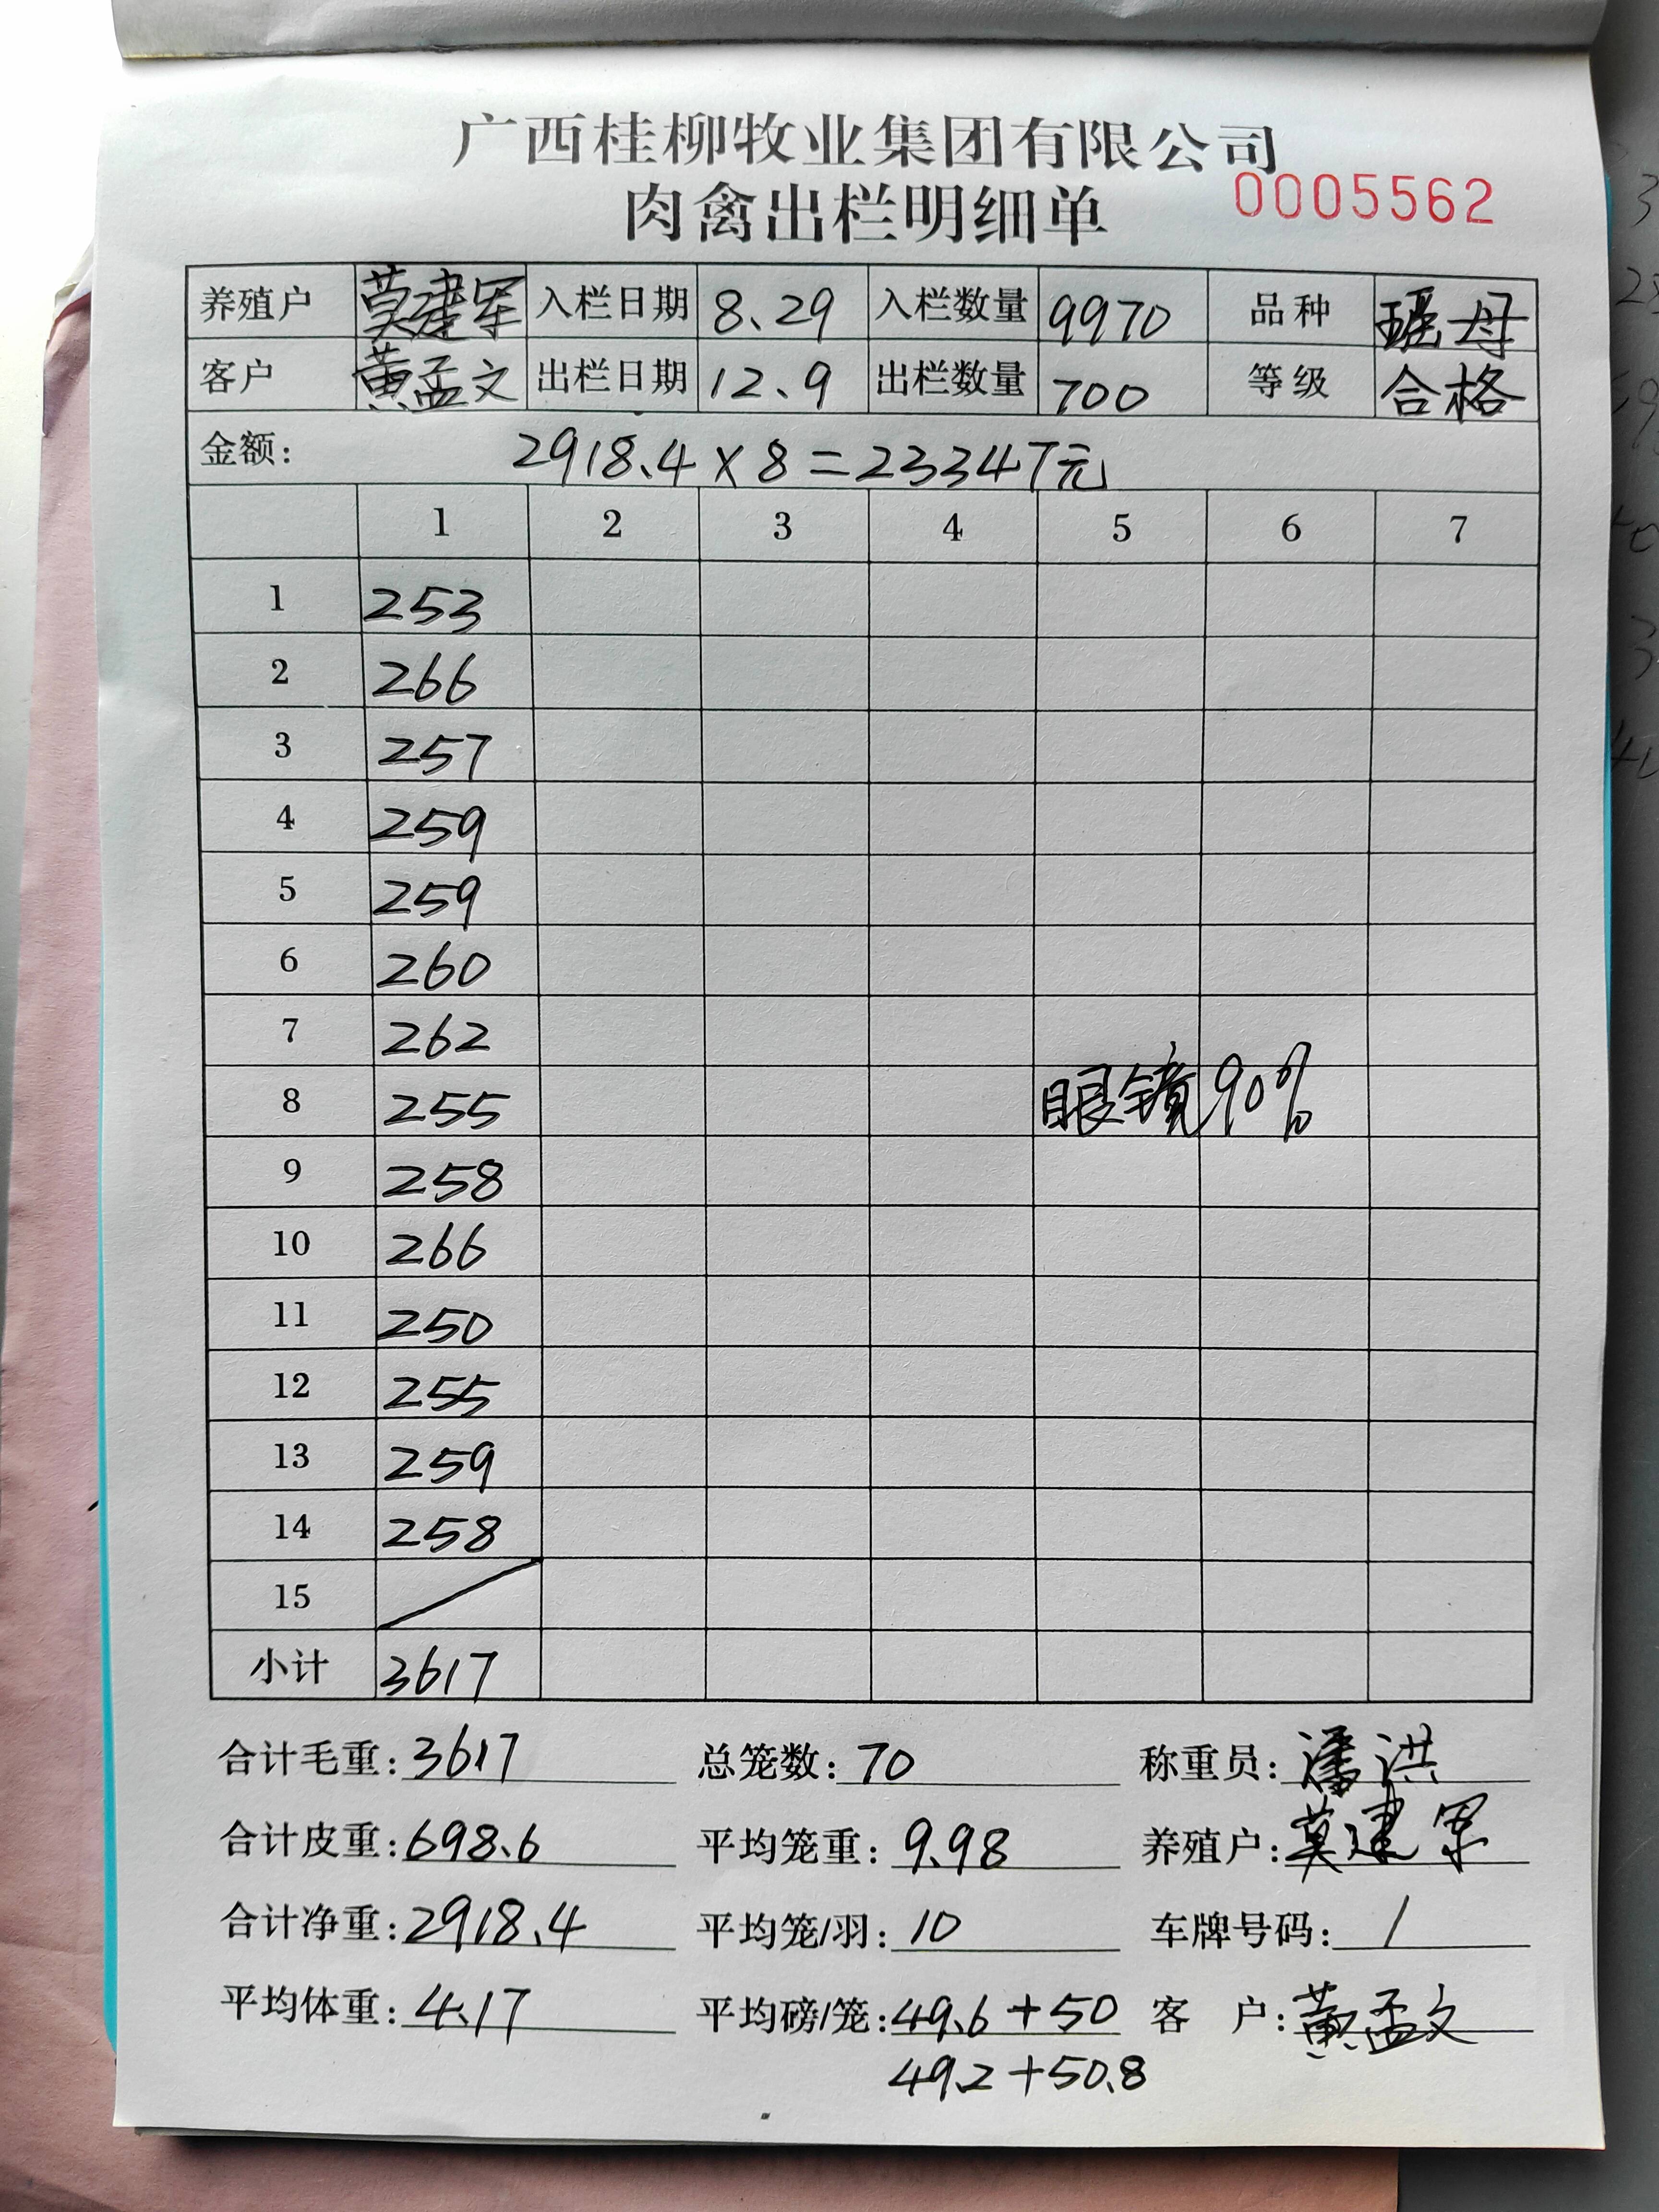 广西桂柳牧业集团有限公司
肉禽出栏明细单 0005562
养殖户 莫建军 入栏日期 8.29 入栏数量 9970 品种 瑶母
客户 黄孟文 出栏日期 12.9 出栏数量 700 等级 合格
金额: 2918.4×8=23347元
1 2 3 4 5 6 7
1 253
2 266
3 257
4 259
5 259
6 260
7 262
8 255 眼镜90%
9 258
10 266
11 250
12 255
13 259
14 258
15
小计 3617
合计毛重: 3617 总笼数: 70 称重员: 潘洪
合计皮重: 698.6 平均笼重: 9.98 养殖户: 莫建军
合计净重: 2918.4 平均笼/羽: 10 车牌号码: /
平均体重: 4.17 平均磅/笼: 49.6+50 客户: 黄孟文
49.2+50.8